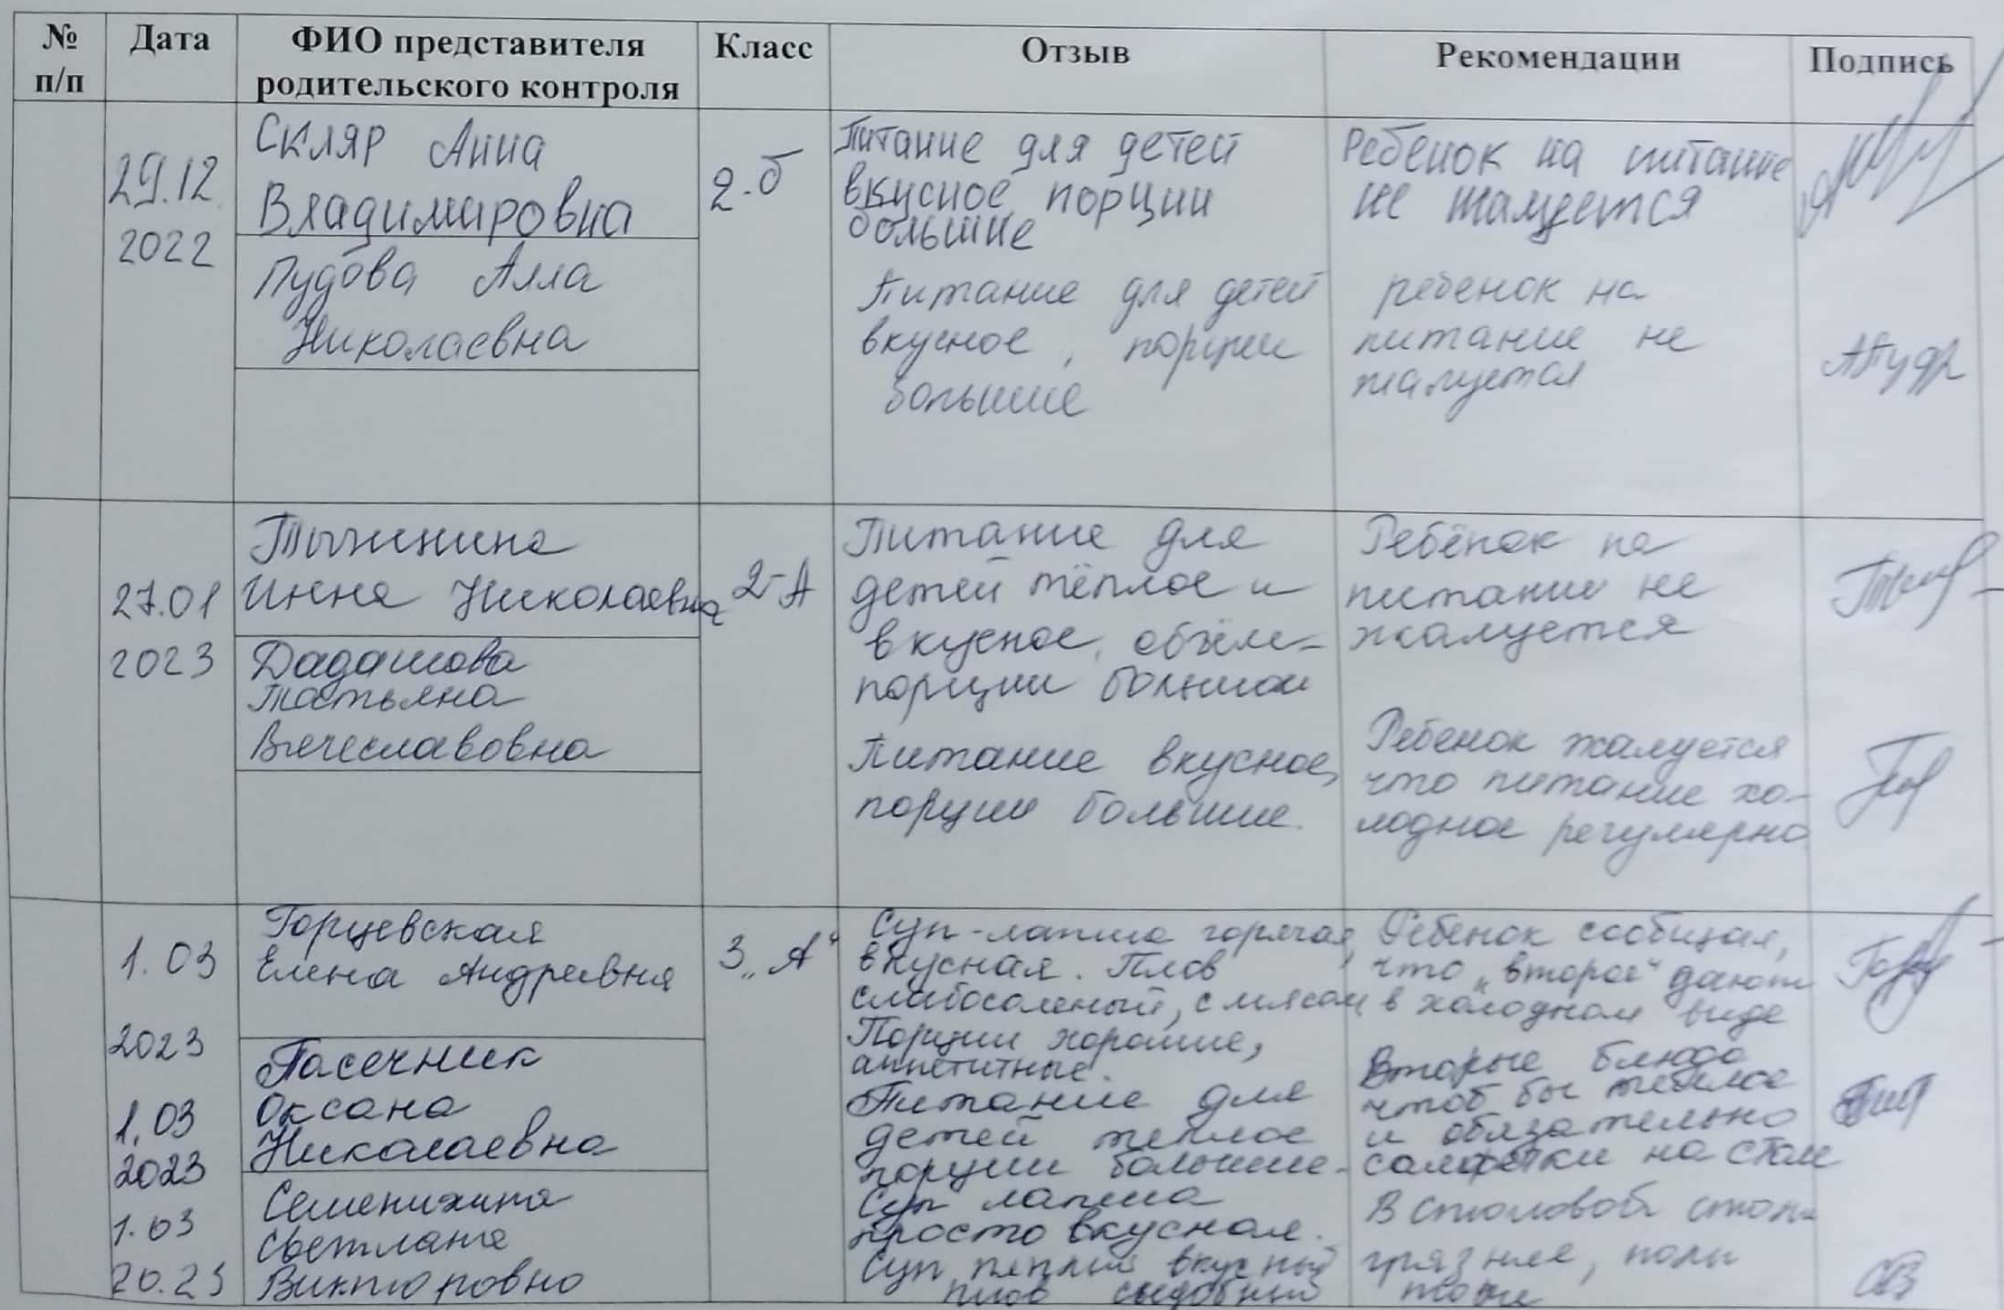 № п/п
Дата
ФИО представителя родительского контроля
Класс
Отзыв
Рекомендации
Подпись
29.12.
2022
Скляр Анна
Владимировна
2-б
Питание для детей
вкусное порции
большие
Ребенок на питание
не жалуется
Пудова Алла
Николаевна
Питание для детей
вкусное, порции
большие
ребенок на
питание не
жалуется
27.01
2023
Тычинина
Инна Николаевна
2-А
Питание для
детей тёплое и
вкусное, объём-
порции большой
Ребёнок на
питание не
жалуется
Дадашова
Татьяна
Вячеславовна
Питание вкусное,
порции большие.
Ребенок жалуется
что питание хо-
лодное регулярно
1.03
2023
Горцевская
Елена Андреевна
3 „А“
Суп-лапша горячая,
вкусная. Плов
слабосоленый, с мясом
Порции хорошие,
аппетитные.
Ребенок сообщал,
что „второе“ дают
в холодном виде
1.03
2023
Пасечник
Оксана
Николаевна
Питание для
детей теплое
порции большие-
Суп лапша
просто вкусная.
Вторые блюда
чтоб бы теплое
и обязательно
салфетки на стол
1.03
20.23
Семенихина
Светлана
Викторовна
Суп теплый вкусный
плов съедобный
В столовой стол-
грязные, полы
тоже